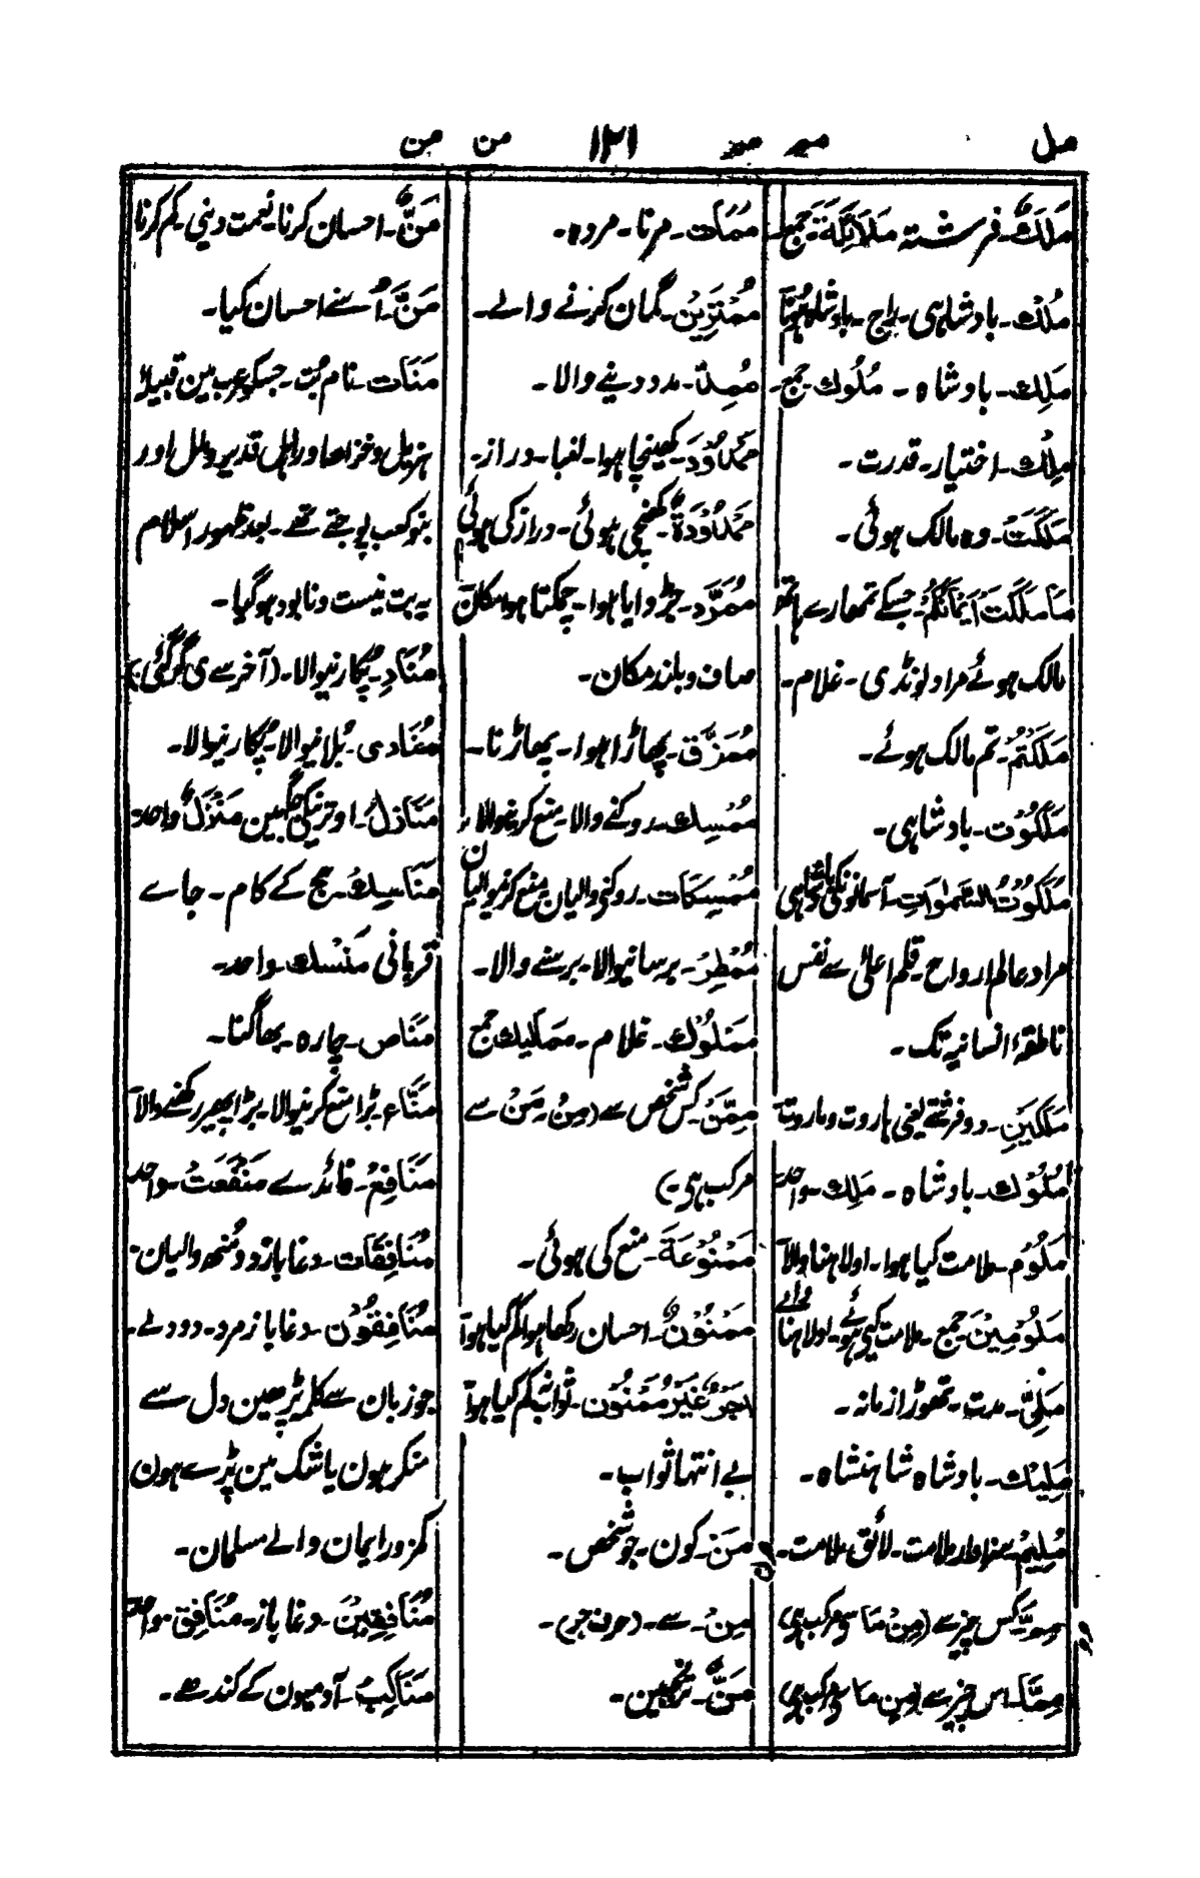 مل مم مم ۱۲۱ من من
مَلَكٌ۔ فرشتہ مَلَائِكَة۔ جمع۔
مُلْك۔ بادشاہی۔ راج۔ بادشاہ ہونا
مَلِك۔ بادشاہ۔ مُلُوك۔ جمع۔
مِلْك۔ اختیار۔ قدرت۔
مَلَكَتْ۔ وہ مالک ہوئی۔
مَا مَلَكَتْ اَيْمَانُكُمْ۔ جسکے تمھارے ہاتھ
مالک ہوئے مراد لونڈی۔ غلام۔
مَلَكْتُمْ۔ تم مالک ہوئے۔
مَلَكُوْت۔ بادشاہی۔
مَلَكُوْتُ السَّمٰوَاتِ۔ آسمانونکی بادشاہی
مراد عالم ارواح۔ قلم اعلیٰ سے نفس
ناطقۂ انسانیہ تک۔
مَلَكَيْنِ۔ دو فرشتے یعنی ہاروت و ماروت
مُلُوْك۔ بادشاہ۔ مَلِك۔ واحد۔
مَلُوْم۔ ملامت کیا ہوا۔ اولاہنا والا
مَلُوْمِيْنَ۔ جمع۔ ملامت کیے ہوئے۔ اولاہنا والے
مَلِيّ۔ مدت۔ تھوڑا زمانہ۔
مَلِيْك۔ بادشاہ شاہنشاہ۔
مُلِيْمٌ۔ سزاوار ملامت۔ لائق ملامت۔
کس چیز سے (مِنْ مَا سے مرکب ہی)
مِمَّا۔ اس چیز سے (مِن مَا سے مرکب ہی)
مَمَات۔ مرنا۔ مردہ۔
مُمْتَرِيْنَ۔ گمان کرنے والے۔
مُمِدّ۔ مدد دینے والا۔
مَمْدُوْد۔ کھینچا ہوا۔ لنبا۔ دراز۔
مَمْدُوْدَةٌ۔ کھنچی ہوئی۔ دراز کی ہوئی
مُمَرَّد۔ جڑ وایا ہوا۔ چمکتا ہوا مکان
صاف و بلند مکان۔
مُمَزَّق۔ پھاڑا ہوا۔ پھاڑنا۔
مُمْسِك۔ روکنے والا۔ منع کرنیوالا۔
مُمْسِكَات۔ روکنے والیان منع کرنیوالیان
مُمْطِرُ۔ برسانیوالا۔ برسنے والا۔
مَمْلُوْك۔ غلام۔ مَمَالِيك جمع
مِمَّنْ۔ کس شخص سے (مِنْ۔ مَنْ سے
مرکب ہی۔)
مَمْنُوْعَة۔ منع کی ہوئی۔
مَمْنُوْنٌ۔ احسان رکھا ہوا کم کیا ہوا
اَجْرٌ غَيْرُ مَمْنُوْن۔ ثواب نہ کم کیا ہوا
بے انتہا ثواب۔
مَنْ۔ کون۔ جو شخص۔
مِنْ۔ سے۔ (حرف جر)۔
مَنٌّ۔ ترنجبین۔
مَنٌّ۔ احسان کرنا۔ نعمت دینی۔ کم کرنا
مَنَّ۔ اُسنے احسان کیا۔
مَنَات۔ نام بُت۔ جسکو عرب مین قبیلۂ
ہزیل و خزاعہ اور اہل قدیر و ملل اور
بنو کعب پوجتے تھے۔ بعد ظہور اسلام
یہ بت نیست و نابود ہوگیا۔
مُنَادِ۔ پکارنیوالا۔ (آخر سے ی گرگئی)
مُنَادِی۔ بلانیوالا۔ پکارنیوالا۔
مَنَازِلُ۔ اوترنیکی جگہین مَنْزِلٌ واحد۔
مَنَاسِكُ۔ حج کے کام۔ جاے
قربانی مَنْسَك۔ واحد۔
مَنَاص۔ چارہ۔ بھاگنا۔
مَنَّاع۔ بڑا منع کرنیوالا۔ بڑا پھیر رکھنے والا
مَنَافِعُ۔ فائدے مَنْفَعَتْ۔ واحد
مُنَافِقَات۔ دغاباز دو مُنھ والیان۔
مُنَافِقُوْن۔ دغاباز مرد۔ دودلے۔
جو زبان سے کلمہ پڑھین دل سے
منکر ہون یا شک مین پڑے ہون
کمزور ایمان والے مسلمان۔
مُنَافِقِيْنَ۔ دغاباز۔ مُنَافِق۔ واحد
مَنَاكِبُ۔ آدمیون کے کندھے۔